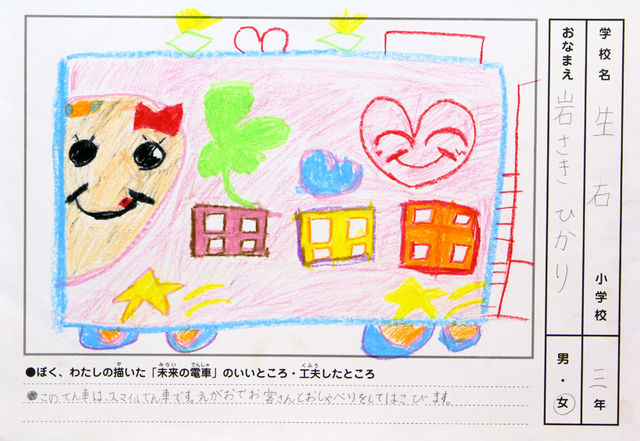 学校名 生石 小学校 三年
おなまえ 岩さき ひかり 男・女
●ぼく、わたしの描いた「未来の電車」のいいところ・工夫したところ
●このてん車は、スマイルてん車です。えがおでお客さんとおしゃべりをしてはこびます。